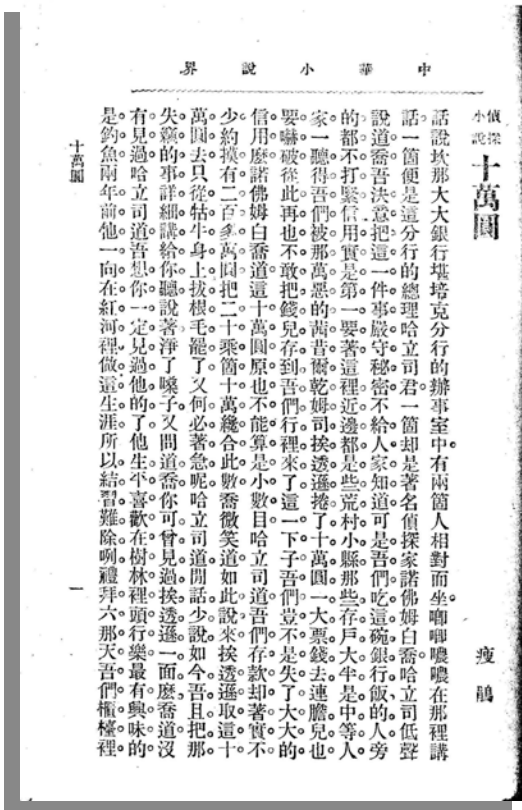 中華小說界
偵探小說 十萬圓
瘦鵑
話說坎那大大銀行堪塔克分行的辦事室中有兩箇人相對而坐唧唧噥噥在那裡講
話一箇便是這分行的總理哈立司君一箇却是著名偵探家諾佛姆白喬哈立司低聲
說道喬吾決意把這一件事嚴守秘密不給人家知道可是吾們吃這碗銀行飯的人旁
的都不打緊信用實是第一要著這裡近邊都是些荒村小縣那些存戶大半是中等人
家一聽得吾們被那萬惡的茜昔爾乾姆司挨透遜捲了十萬圓一大票錢去連膽兒也
要嚇破從此再也不敢把錢兒存到吾們行裡來了這一下子吾們豈不是失了大大的
信用麼諾佛姆白喬道這十萬圓原也不能算是小數目哈立司道吾們存款却著實不
少約摸有二百多萬圓把二十乘箇十萬纔合此數喬微笑道如此說來挨透遜取這十
萬圓去只從牯牛身上拔根毛罷了又何必著急呢哈立司道閒話少說如今吾且把那
失竊的事詳細講給你聽說著淨了嗓子又問道喬你可曾見過挨透遜一面麼喬道沒
有見過哈立司道吾想你一定見過他的了他生平喜歡在樹林裡頭行樂最有興味的
是釣魚兩年前他一向在紅河裡做這生涯所以結習難除咧禮拜六那天吾們櫃檯裡
十萬圓
一